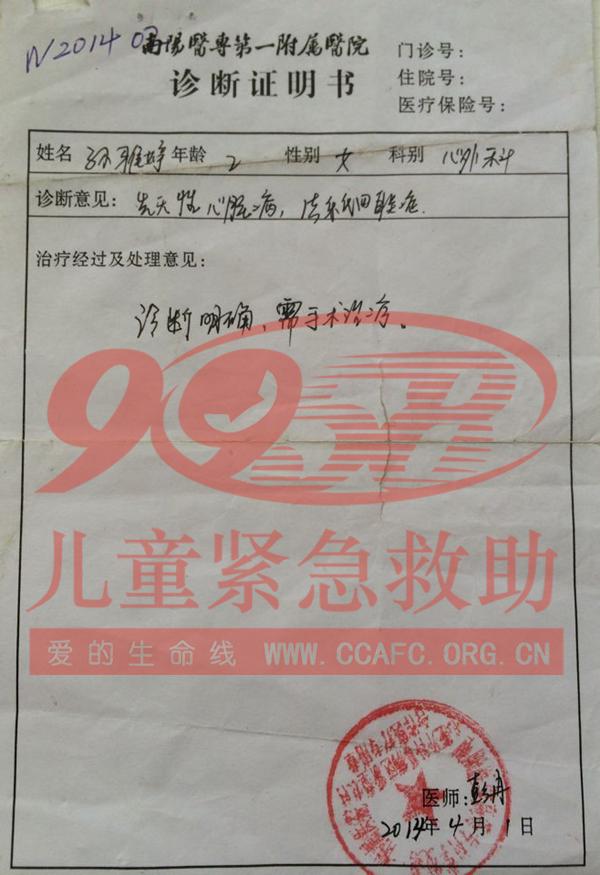 N201403
南陽醫專第一附属醫院
诊断证明书
门诊号：
住院号：
医疗保险号：
姓名 孙雅婷 年龄 2 性别 女 科别 心外科
诊断意见： 先天性心脏病，法乐氏四联症.
治疗经过及处理意见：
诊断明确，需手术治疗。
99
儿童紧急救助
爱的生命线 WWW.CCAFC.ORG.CN
医师：彭丹
2014年4月1日